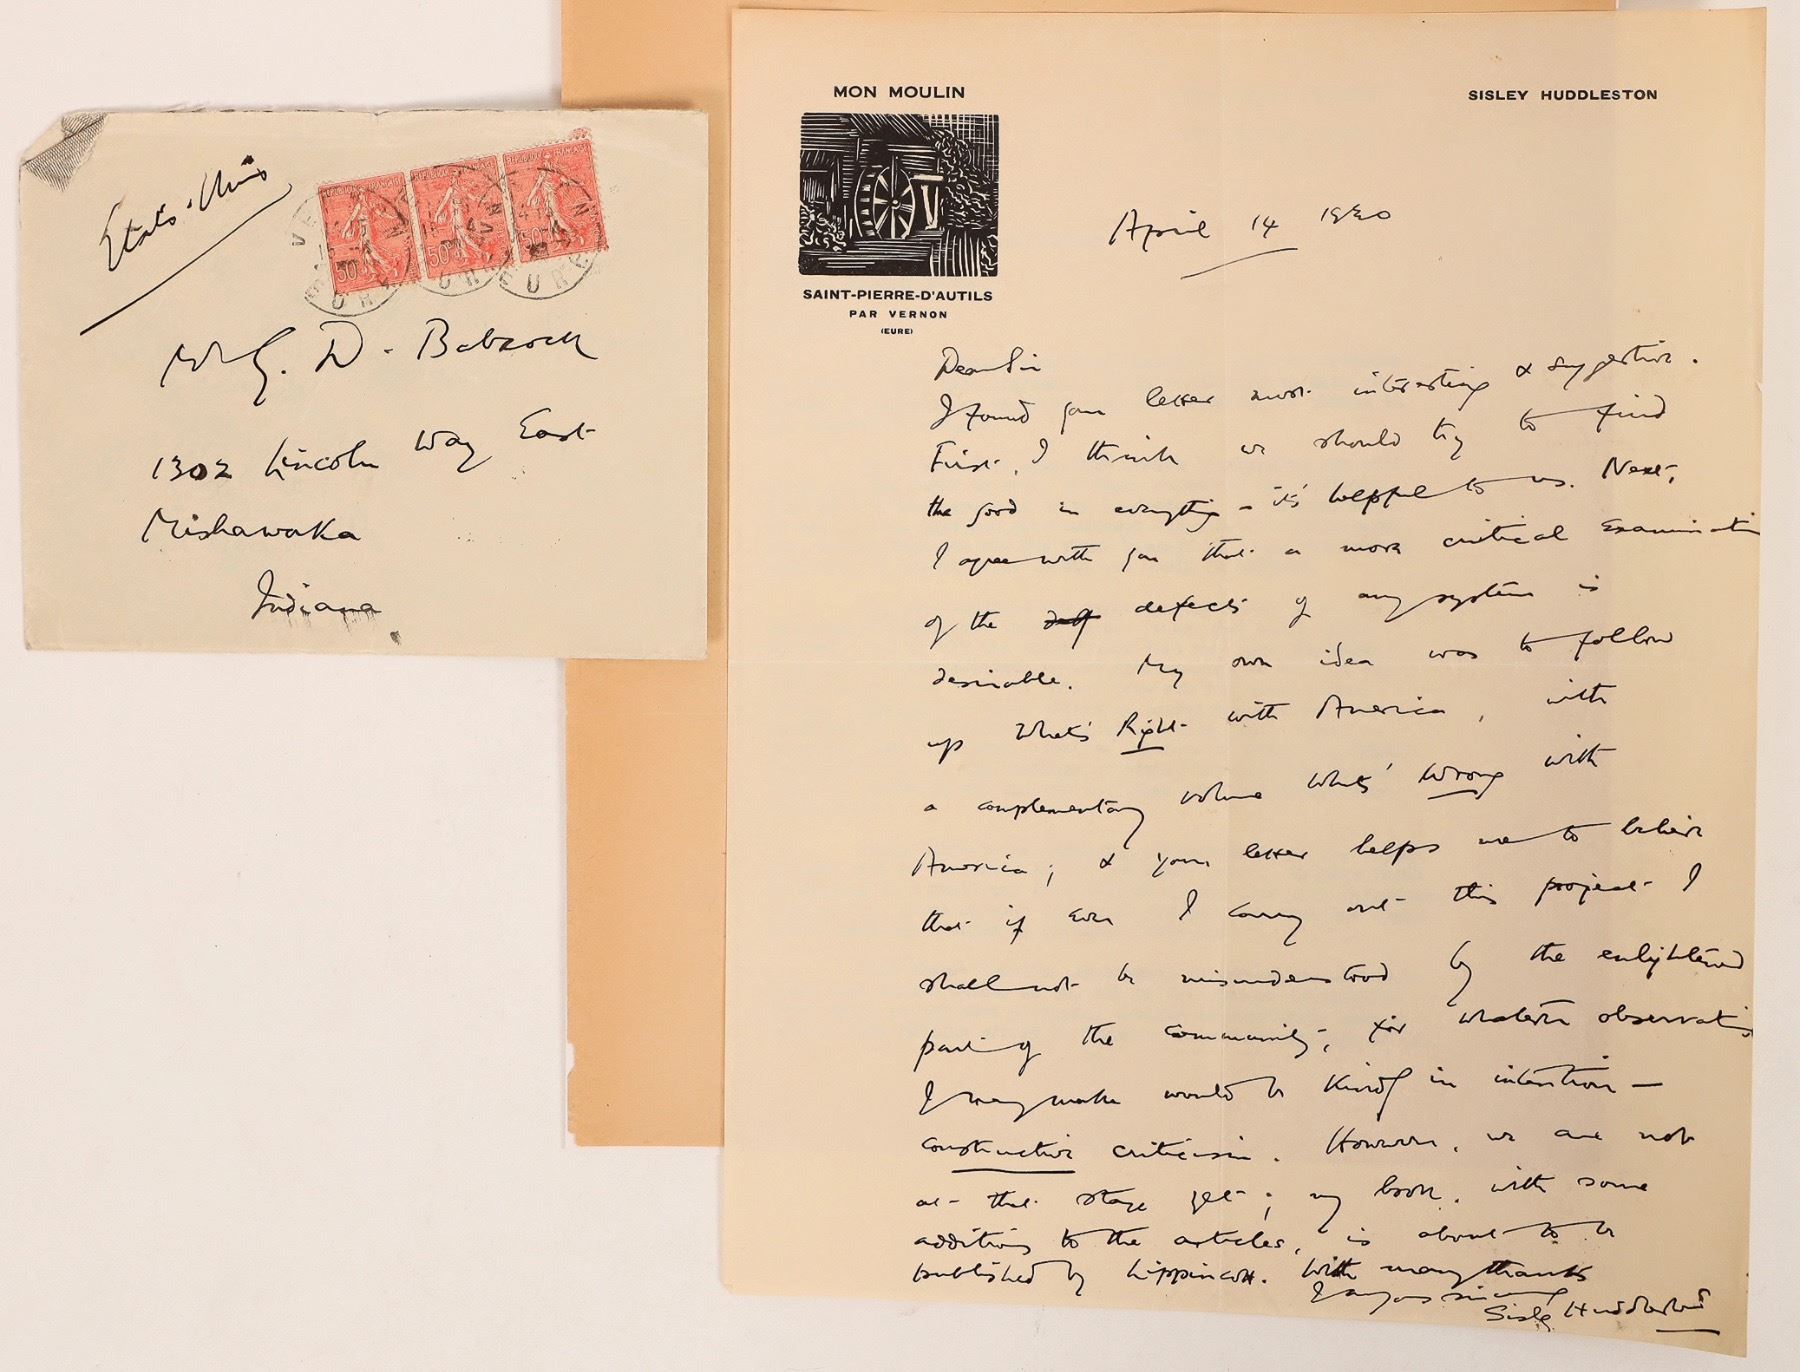 États-Unis
REPUBLIQUE FRANÇAISE
50
50
50
VERNON
EURE
Mr G. D. Babcock
1302 Lincoln Way East
Mishawaka
Indiana
MON MOULIN
SISLEY HUDDLESTON
SAINT-PIERRE-D'AUTILS
PAR VERNON
(EURE)
April 14 1930
Dear Sir
I found your letter most interesting & suggestive.
First, I think we should try to find
the good in everything - it's helpful to us. Next,
I agree with you that a more critical examination
of the defects of any system is
desirable. My own idea was to follow
up What's Right with America, with
a complementary volume What's Wrong with
America; & your letter helps me to believe
that if ever I carry out this project I
shall not be misunderstood by the enlightened
part of the community; for whatever observations
I may make would be kindly in intention —
constructive criticism. However, we are not
at that stage yet; my book, with some
additions to the articles, is about to be
published by Lippincott. With many thanks
I am yours sincerely
Sisley Huddleston